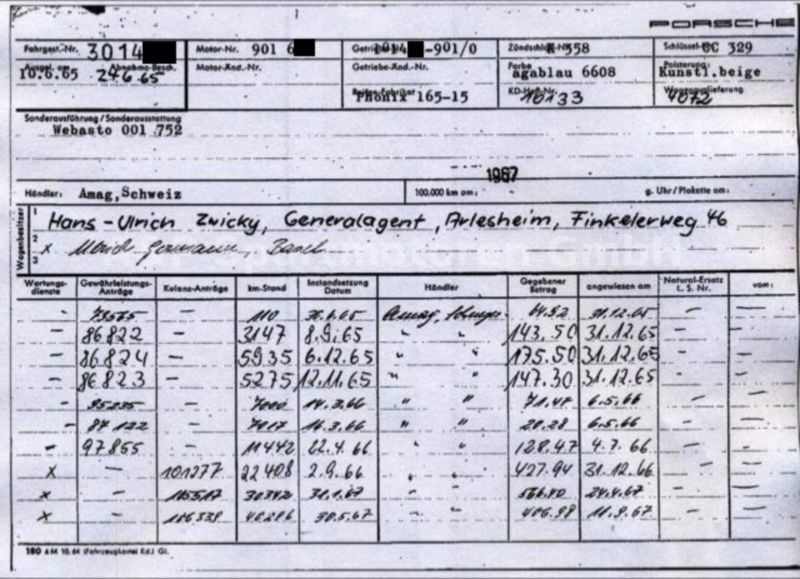 PORSCHE
Fahrgest.-Nr. 3014 Motor-Nr. 901 6 Getriebe-Nr. -901/0 Zündschloß-Nr. 358 Schlüssel-Nr. CC 329
Ausgel. am Abnahme-Besch. Motor-Änd.-Nr. Getriebe-Änd.-Nr. Farbe Polsterung:
10.6.65 24.6.65 agablau 6608 Kunstl.beige
Reifen-Fabrikat KD-Heft-Nr. Wagenauslieferung
Phönix 165-15 10133 4072
Sonderausführung / Sonderausstattung
Webasto 001 752
1967
Händler: Amag,Schweiz 100.000 km am: g. Uhr/Plakette am:
Wagenbesitzer
1 Hans-Ulrich Zwicky, Generalagent, Arlesheim, Finkelerweg 46
2 x Basel
3
Wartungsdienste Gewährleistungs-Anträge Kulanz-Anträge km-Stand Instandsetzung Datum Händler Gegebener Betrag angewiesen am Natural-Ersatz L. S. Nr. vom:
- - 110 Amag, 64.92 - -
- 86822 - 3147 8.9.65 " " 143.50 31.12.65 - -
- 86824 - 5935 6.12.65 " " 175.50 31.12.65 - -
- 86823 - 5275 12.11.65 " " 147.30 31.12.65 - -
- 95235 - 7000 14.3.66 " " 71.47 6.5.66 - -
- 87122 - 7017 16.3.66 " " 20.28 6.5.66 - -
- 97855 - 11442 22.4.66 " " 128.47 4.7.66 - -
x - 101277 22408 2.9.66 " " 427.94 31.12.66 - -
x - 30342 31.1.67 " " 24.4.67 - -
x - 106539 40286 30.5.67 " " 406.98 11.9.67 - -
180 6M 10.64 (Fahrzeugkartei Kd.) Gl.